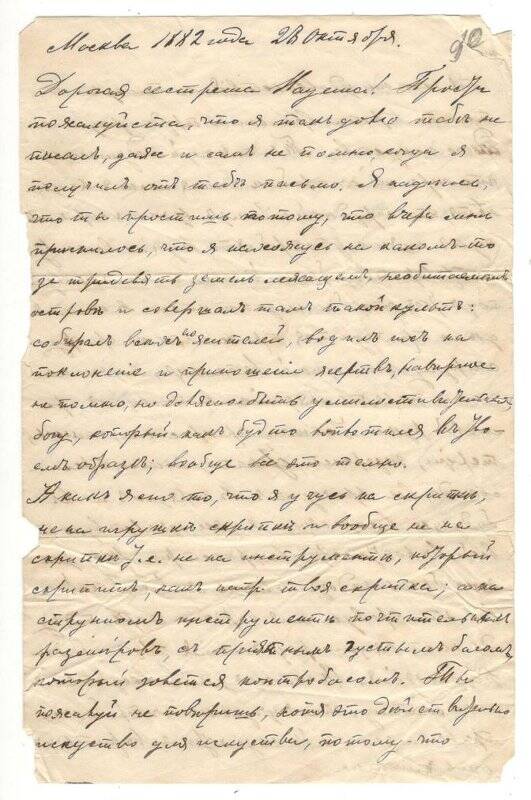 Москва 1882 года 28 Октября.
90
Дорогая сестреша Надеша! Прости
пожалуйста, что я такъ довго тебѣ не
писалъ, даже и самъ не помню, когда я
получилъ отъ тебѣ письмо. Я надѣюсь,
что ты простишь потому, что вчера мнѣ
приснилось, что я нахожусь на какомъ-то
за тридевять земель лежащемъ, необитаемымъ
островѣ и совершалъ тамъ такой культъ:
собиралъ всѣхъ жителей, водилъ ихъ на
поклоненіе и приношеніе жертвъ, навѣрное
не помню, но должно быть умилостивительныхъ
богу, который какъ будто воплотился въ
емъ образѣ; вообще на это только.
А какъ я что то, что я учусь на скрипкѣ,
не на игрушкѣ скрипкѣ и вообще не на
скрипкѣ т.е. не на инструментѣ, который
скрипитъ, какъ твоя скрипка; а на
струнномъ инструментѣ почтительныхъ
размѣровъ, съ пріятнымъ густымъ басомъ
который зовется контробасомъ. Ты
пожалуй не повѣришь, хотя это дѣйствительно
искуство для искуства, потому-что